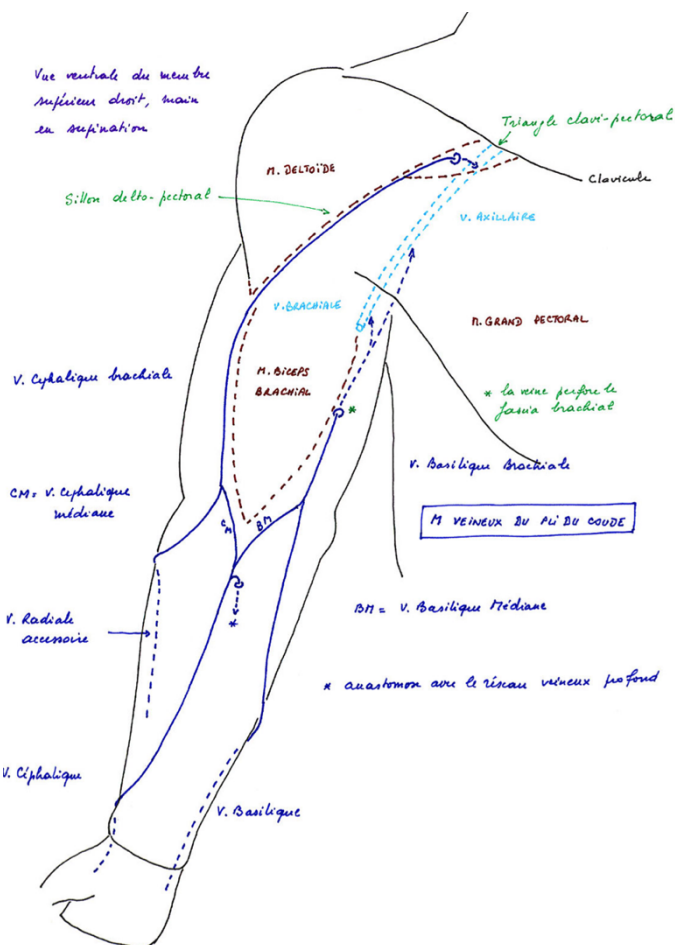 Vue ventrale du membre
supérieur droit, main
en supination
Triangle clavi-pectoral
M. DELTOÏDE
Clavicule
Sillon delto-pectoral
V. AXILLAIRE
V. BRACHIALE
M. GRAND PECTORAL
V. Céphalique brachiale
M. BICEPS
BRACHIAL
* la veine perfore le
fascia brachial
*
V. Basilique Brachiale
CM = V. Céphalique
médiane
CM
BM
M VEINEUX DU PLI DU COUDE
BM = V. Basilique Médiane
V. Radiale
accessoire
*
* anastomose avec le réseau veineux profond
V. Céphalique
V. Basilique